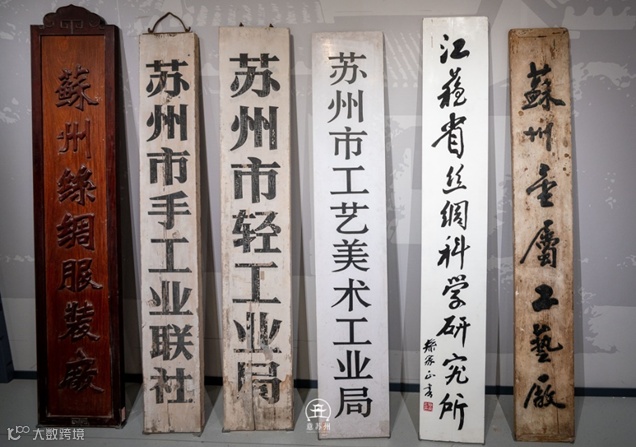 蘇州絲綢服装廠
苏州市手工业联社
苏州市轻工业局
苏州市工艺美术工业局
江蘓省丝绸科学研究所
蘇州金属工藝廠
意苏州
大数跨境